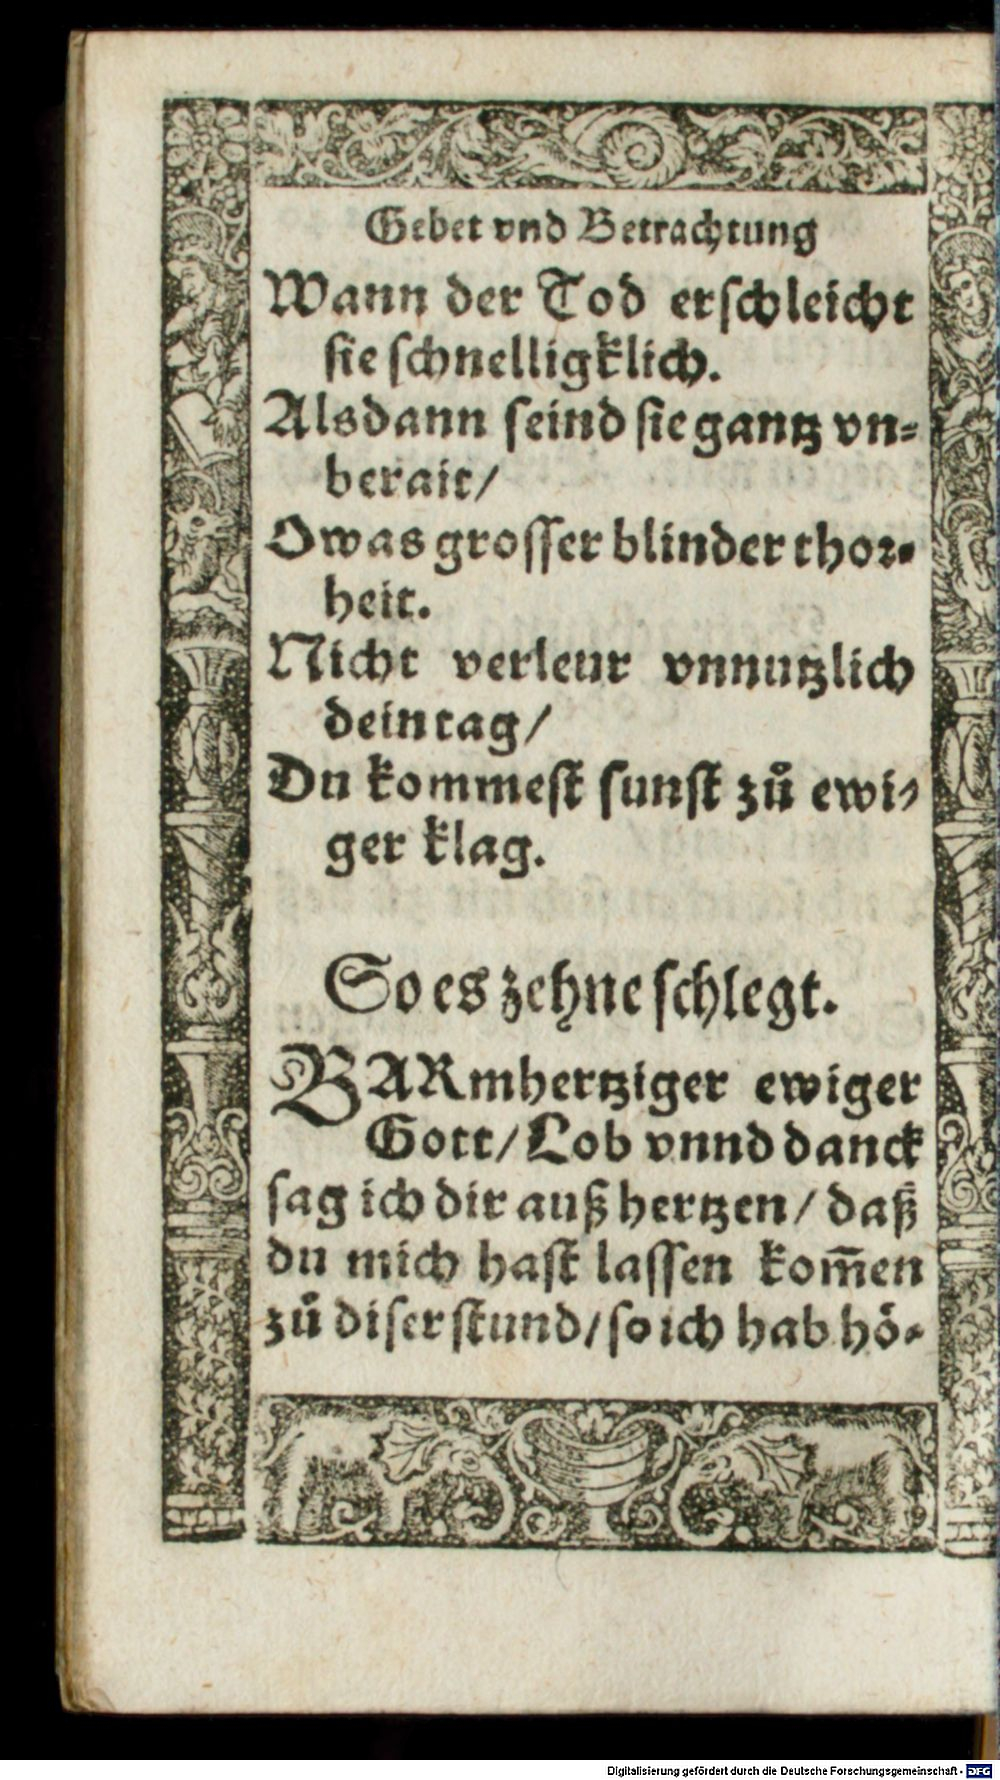 Gebet vnd Betrachtung
Wann der Tod erſchleicht
ſie ſchnelligklich.
Alsdann ſeind ſie gantz vn⸗
berait/
O was groſſer blinder thor⸗
heit.
Nicht verleur vnnutzlich
dein tag/
Du kommeſt ſunſt zů ewi⸗
ger klag.
So es zehne ſchlegt.
BARmhertziger ewiger
Gott/ Lob vnnd danck
ſag ich dir auß hertzen/ daß
du mich haſt laſſen kom̄en
zů diſer ſtund/ ſo ich hab hoͤ⸗
Digitalisierung gefördert durch die Deutsche Forschungsgemeinschaft - DFG